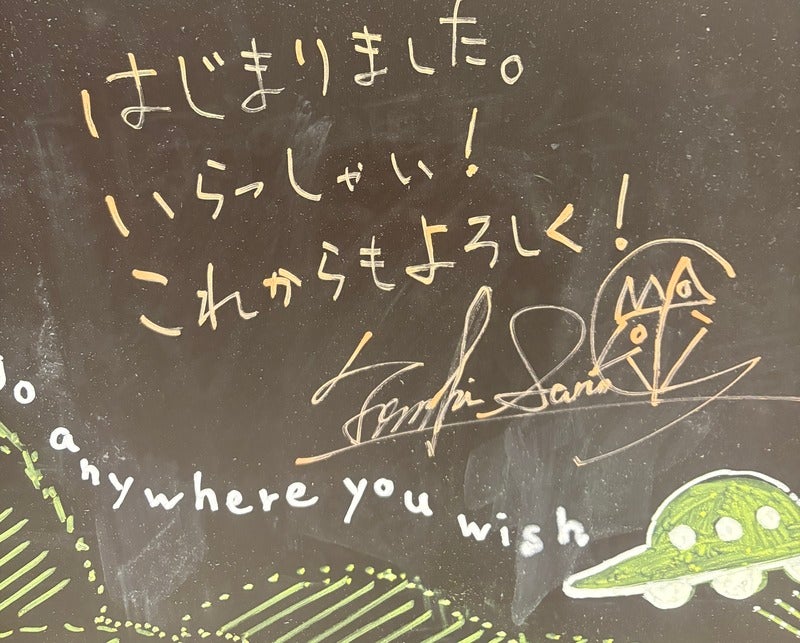 はじまりました。
いらっしゃい!
これからもよろしく!
anywhere you wish